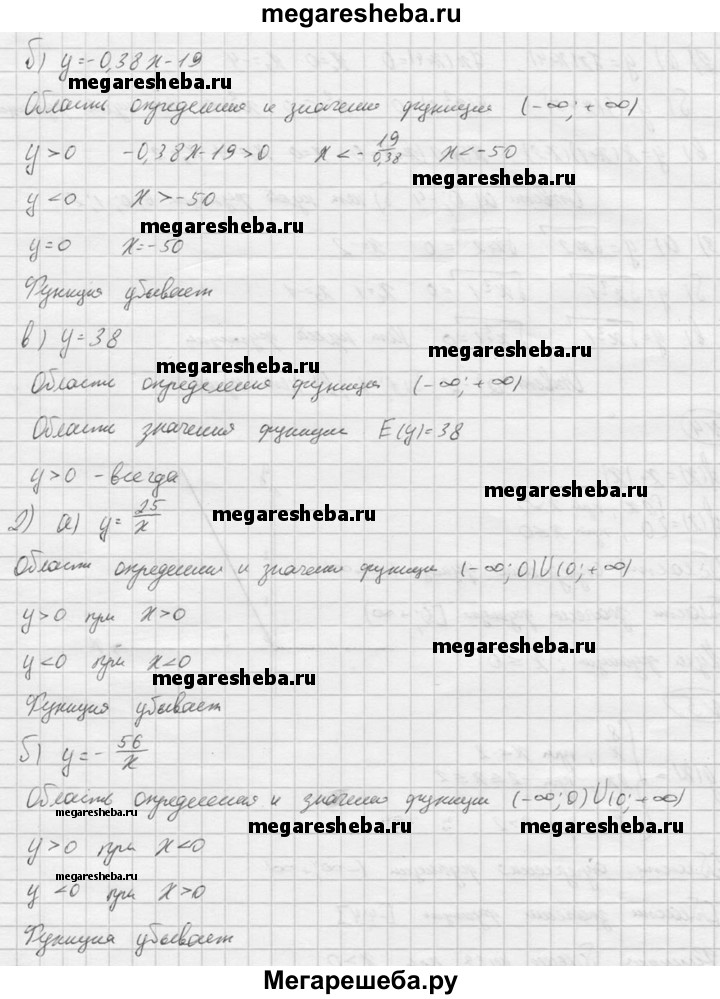 megaresheba.ru
б) y=-0,38x-19
megaresheba.ru
Области определения и значения функции (-∞;+∞)
y>0 -0,38x-19>0 x<-19/0,38 x<-50
megaresheba.ru
y<0 x>-50
megaresheba.ru
y=0 x=-50
Функция убывает
в) y=38
megaresheba.ru
megaresheba.ru
Область определения функции (-∞;+∞)
Область значения функции E(y)=38
y>0 - всегда
megaresheba.ru
2) а) y=25/x
megaresheba.ru
Области определения и значения функции (-∞;0)U(0;+∞)
y>0 при x>0
megaresheba.ru
y<0 при x<0
megaresheba.ru
Функция убывает
б) y=-56/x
Область определения и значения функции (-∞;0)U(0;+∞)
megaresheba.ru
megaresheba.ru
megaresheba.ru
y>0 при x<0
megaresheba.ru
y<0 при x>0
Функция убывает
Мегарешеба.ру